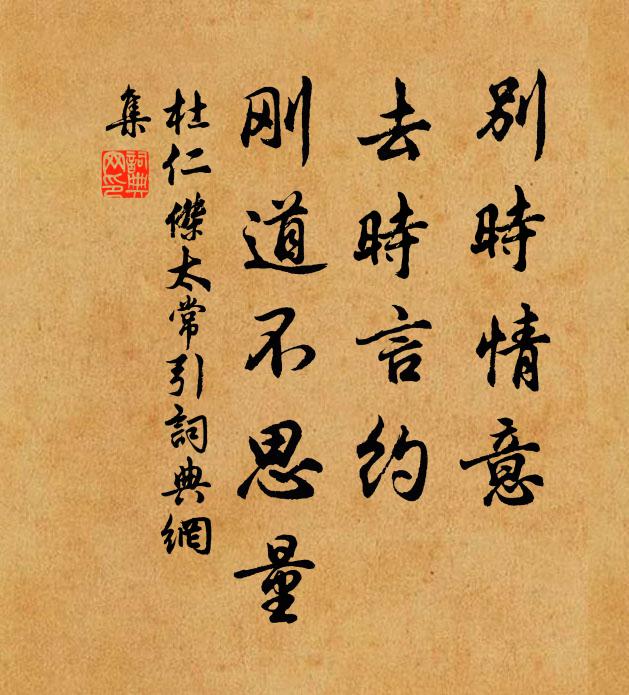 別時情意
去時言約
刚道不思量
杜仁傑太常引詞典網
集
詞典
网印